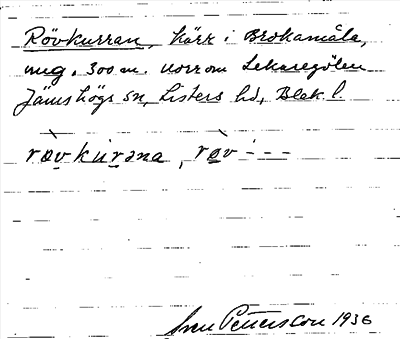 Rövkurran, kärr i Brokamåla,
ung. 300 m. norr om Lekaregölen
Jämshögs sn, Listers hd, Blek. l.
rœvkurəna, rœv - - -
Sven Petterson 1936